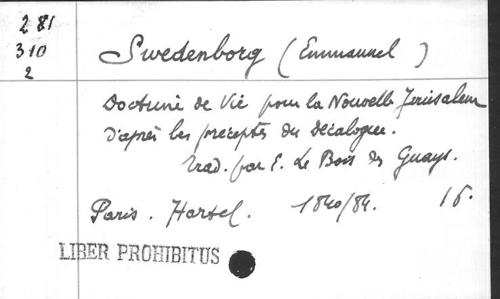 281
310
2
Swedenborg (Emmanuel)
Doctrine de Vie pour la Nouvelle Jerusalem
d'après les préceptes du décalogue.
Trad. par E. Le Bois des Guays.
Paris. Hartel. 1840/84. 16.
LIBER PROHIBITUS